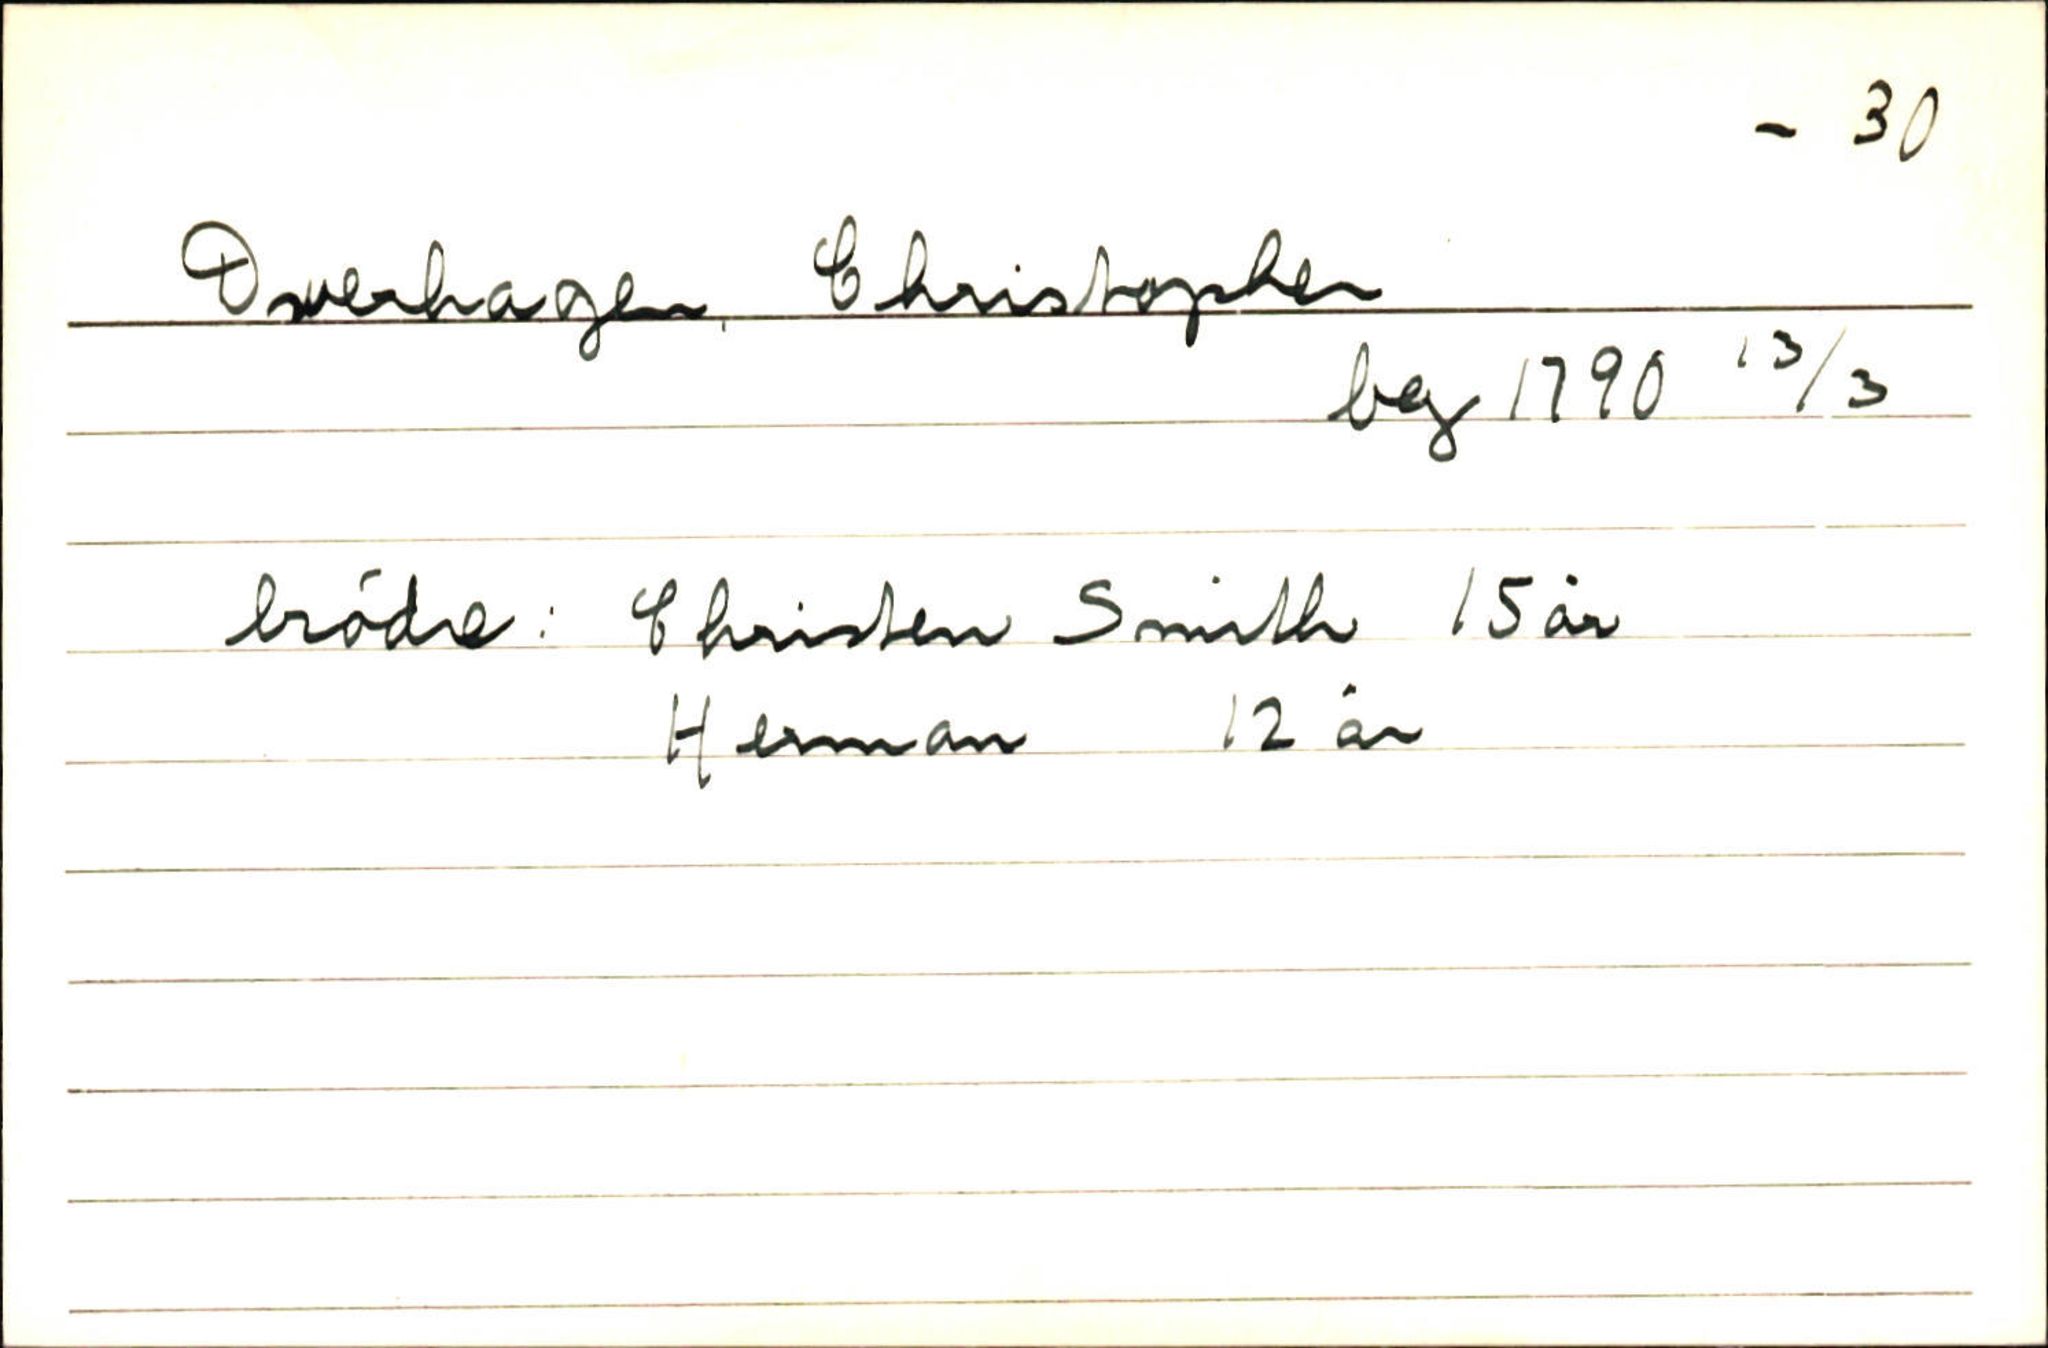 - 30
Dwerhagen, Christopher
beg 1790 13/3
bródre: Christen Smith 15 år
Herman 12 år